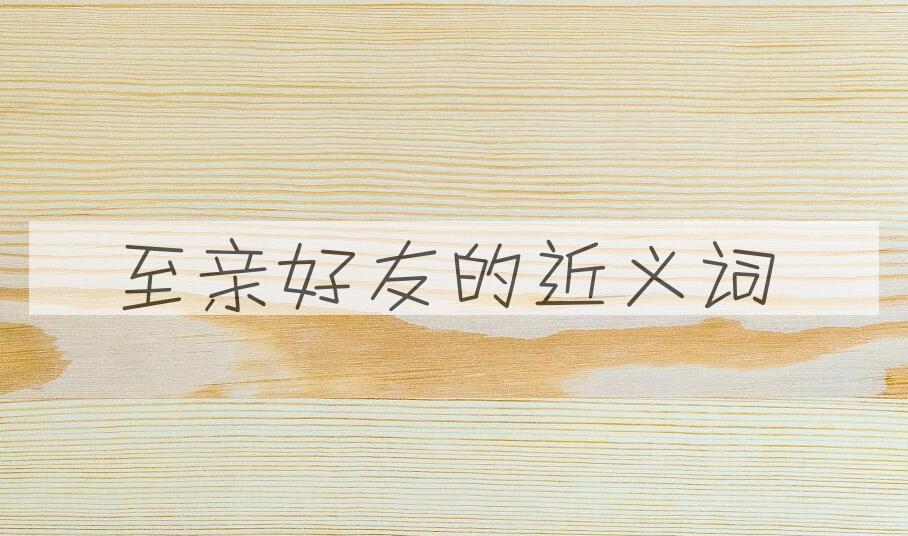 至亲好友的近义词